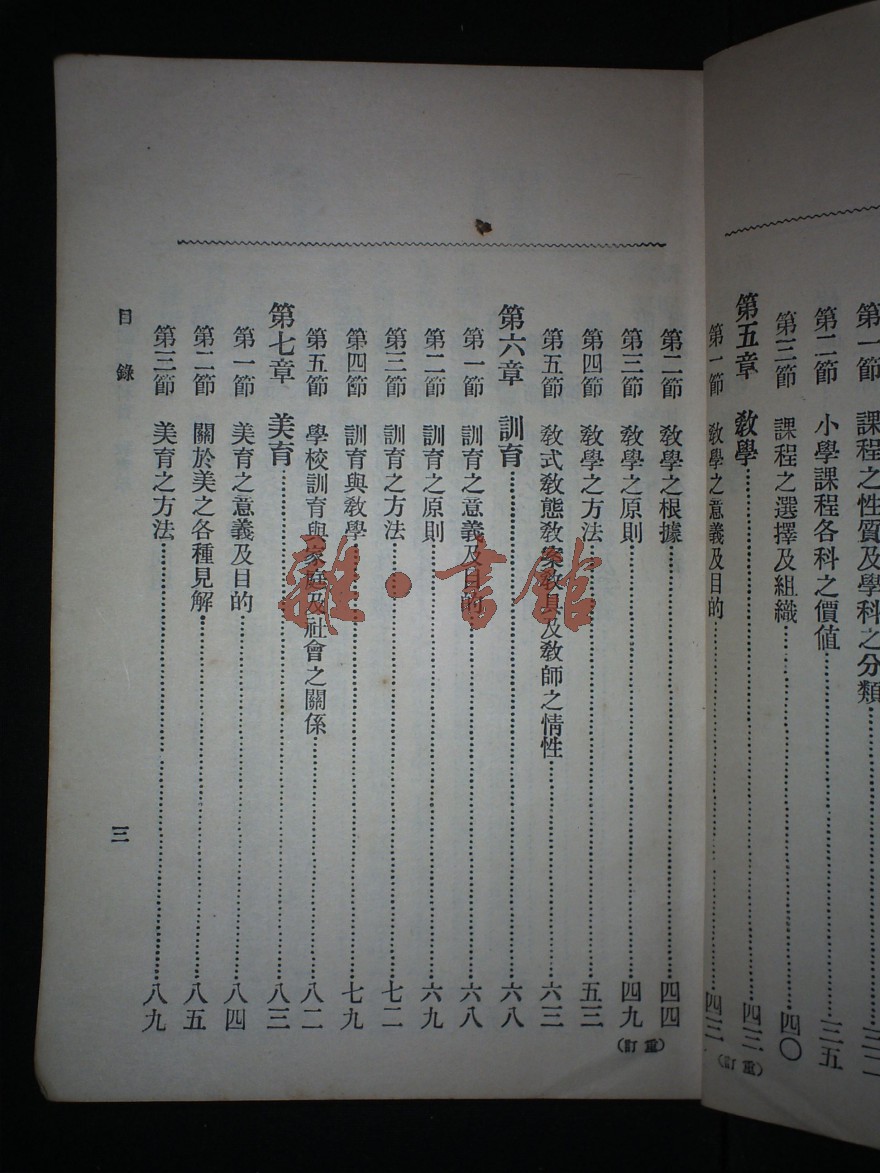 第一節 課程之性質及學科之分類
第二節 小學課程各科之價値 三五
第三節 課程之選擇及組織 四〇
第五章 敎學 四三
第一節 敎學之意義及目的 四三
(重訂)
第二節 敎學之根據 四四
第三節 敎學之原則 四九
第四節 敎學之方法 五三
第五節 敎式敎態敎案敎具及敎師之情性 六三
第六章 訓育 六八
第一節 訓育之意義及目的 六八
第二節 訓育之原則 六九
第三節 訓育之方法 七二
第四節 訓育與敎學 七九
第五節 學校訓育與家庭及社會之關係 八二
第七章 美育 八三
第一節 美育之意義及目的 八四
第二節 關於美之各種見解 八五
第三節 美育之方法 八九
目錄
三
(重訂)
雜·書館